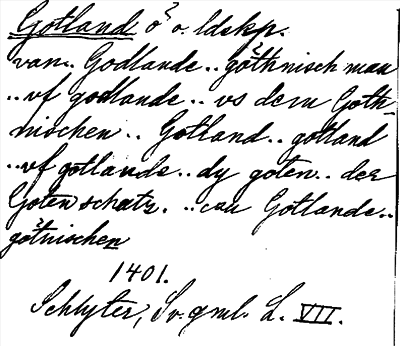 Gotland ö? o. ldskp.
van.. Godlande.. gőthnisch man
..vf godlande.. vs dem Goth-
nischen.. Gotland.. gotland
..vf gotlande.. dy goten.. der
Goten schatz. ..czu Gotlande..
gőtnischen
1401.
Schlyter, Sv. gml. L. VII.